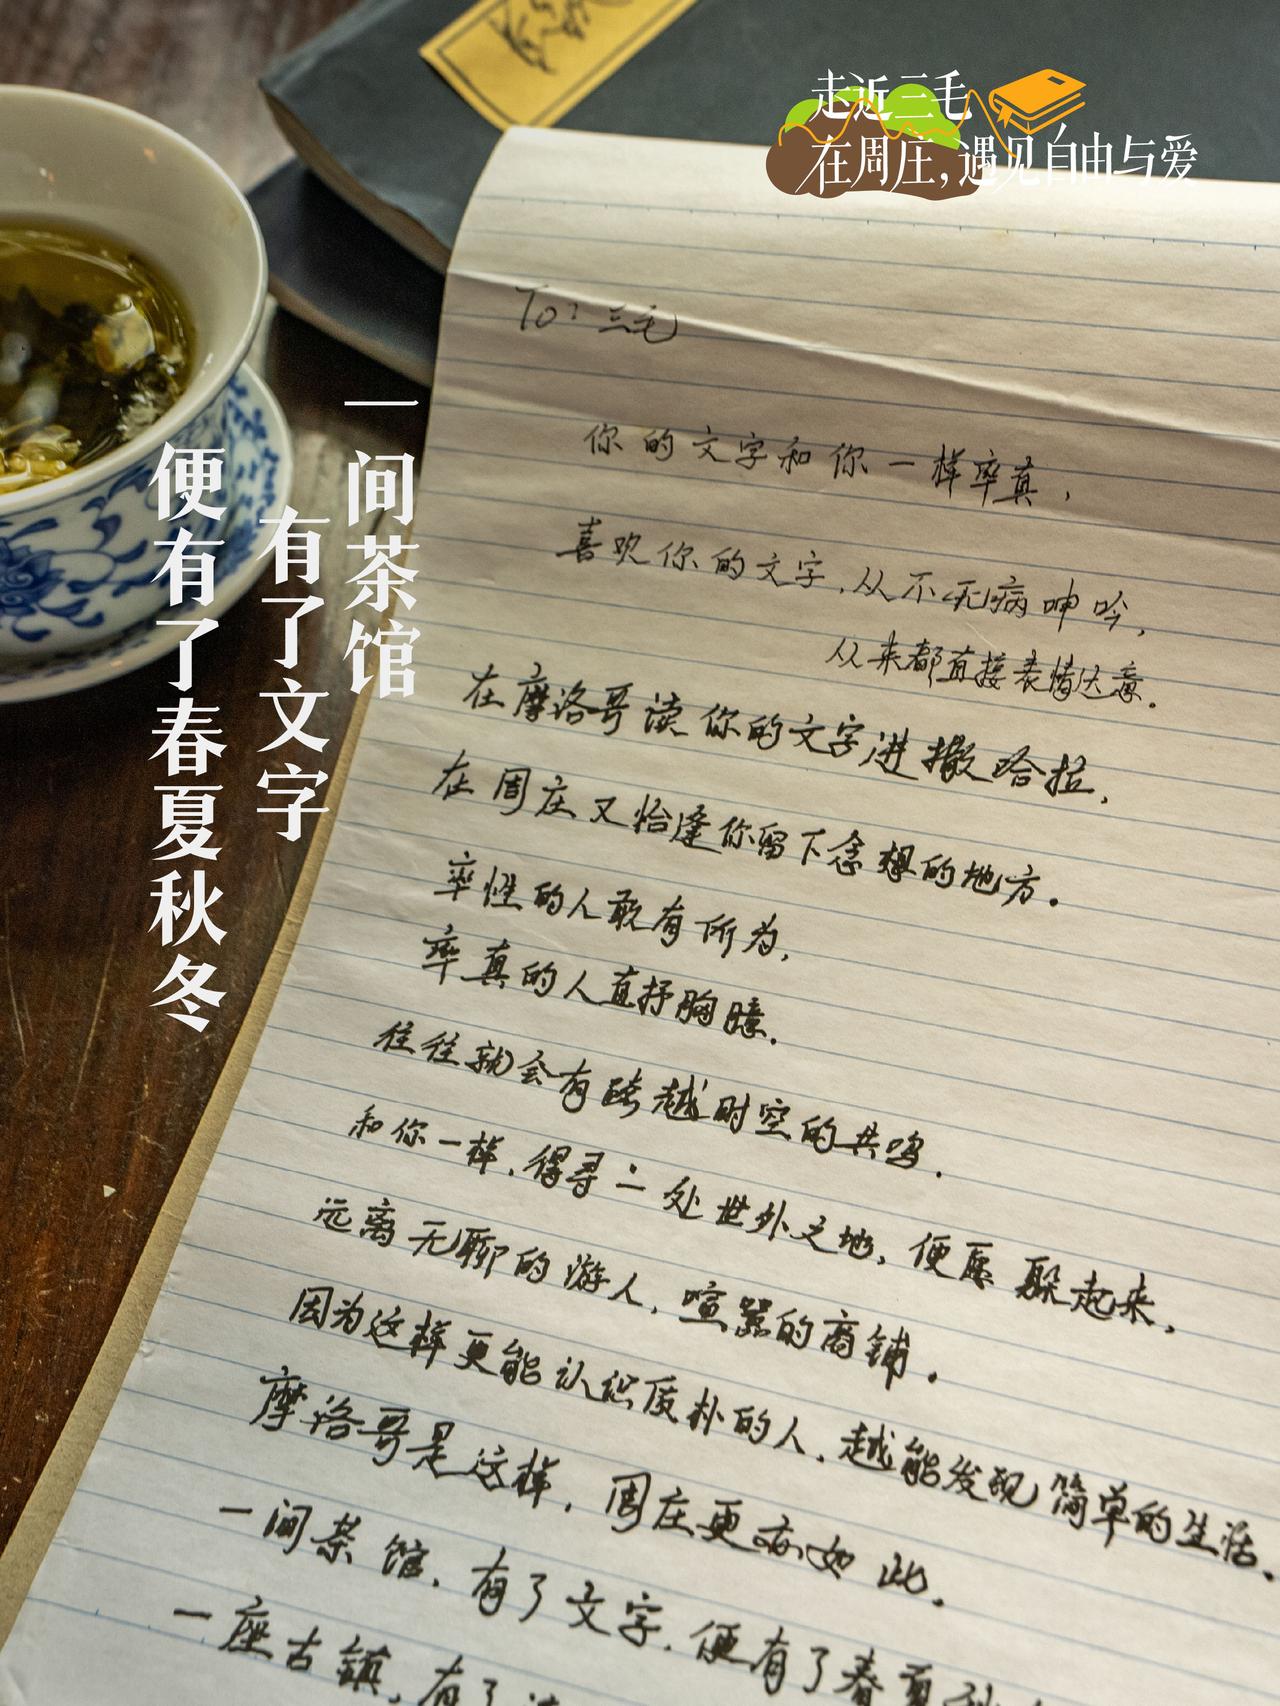 走近三毛
在周庄,遇见自由与爱
一间茶馆
有了文字
便有了春夏秋冬
To:三毛
你的文字和你一样率真,
喜欢你的文字,从不无病呻吟,
从来都直接表情达意。
在摩洛哥读你的文字进撒哈拉,
在周庄又恰逢你留下念想的地方。
率性的人敢有所为,
率真的人直抒胸臆。
往往就会有跨越时空的共鸣.
和你一样,得寻一处世外之地,便愿躲起来,
远离无聊的游人,喧嚣的商铺.
因为这样更能认识质朴的人,越能发现简单的生活.
摩洛哥是这样,周庄更亦如此.
一间茶馆,有了文字,便有了春夏秋
一座古镇,有了